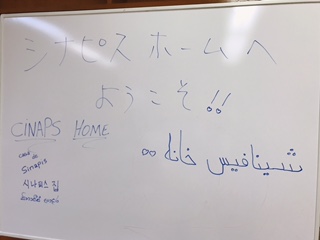 シナピス ホームへ
ようこそ!!
CINAPS HOME
شينافيس خانه
casa
de
Sinapis
시나피스 집